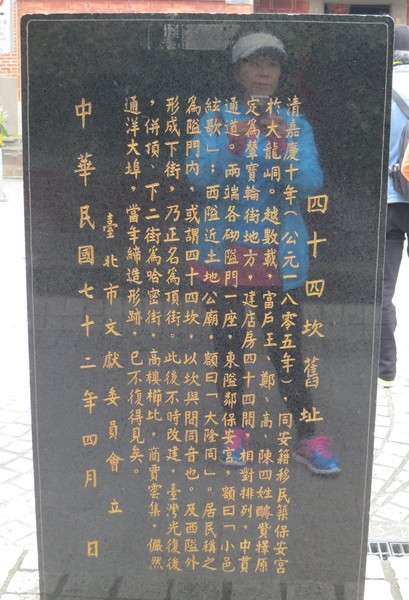 四十四坎舊址
清嘉慶十年(公元一八零五年),同安籍移民築保安宮
於大龍峒。越數載,富戶王、鄭、高、陳四姓醵費擇原
定為輦寶輪街地方,建店房四十四間,相對排列,中貫
通道。兩端各砌隘門一座,東隘鄰保安宮,額曰「小邑
絃歌」;西隘近土地公廟,額曰「大隆同」。居民稱之
為隘門內,或謂四十四坎,以坎與間同音也。及西隘外
形成下街,乃正名為頂街。此後不時改建,臺灣光復後
,併頂、下二街為哈密街,高樓櫛比,商賈雲集,儼然
通洋大埠,當年締造形跡,已不復得見矣。
臺北市文獻委員會立
中華民國七十二年四月 日